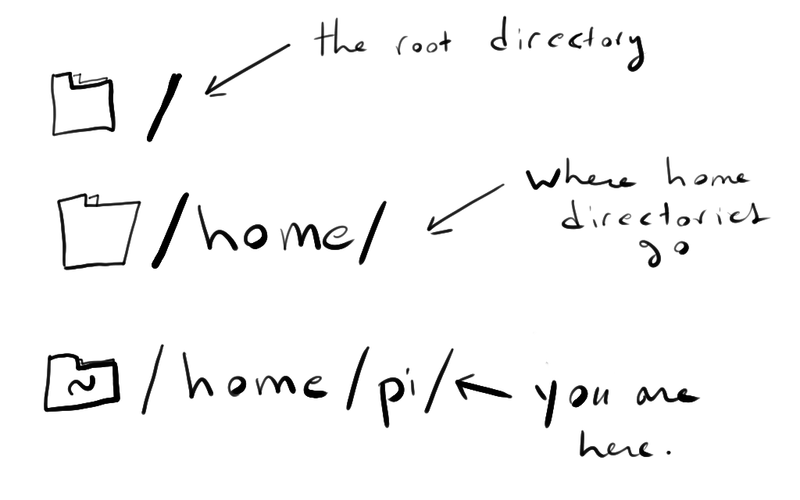 the root directory
/
where home
/home/
directories
go
~ /home/pi/ you are
here.